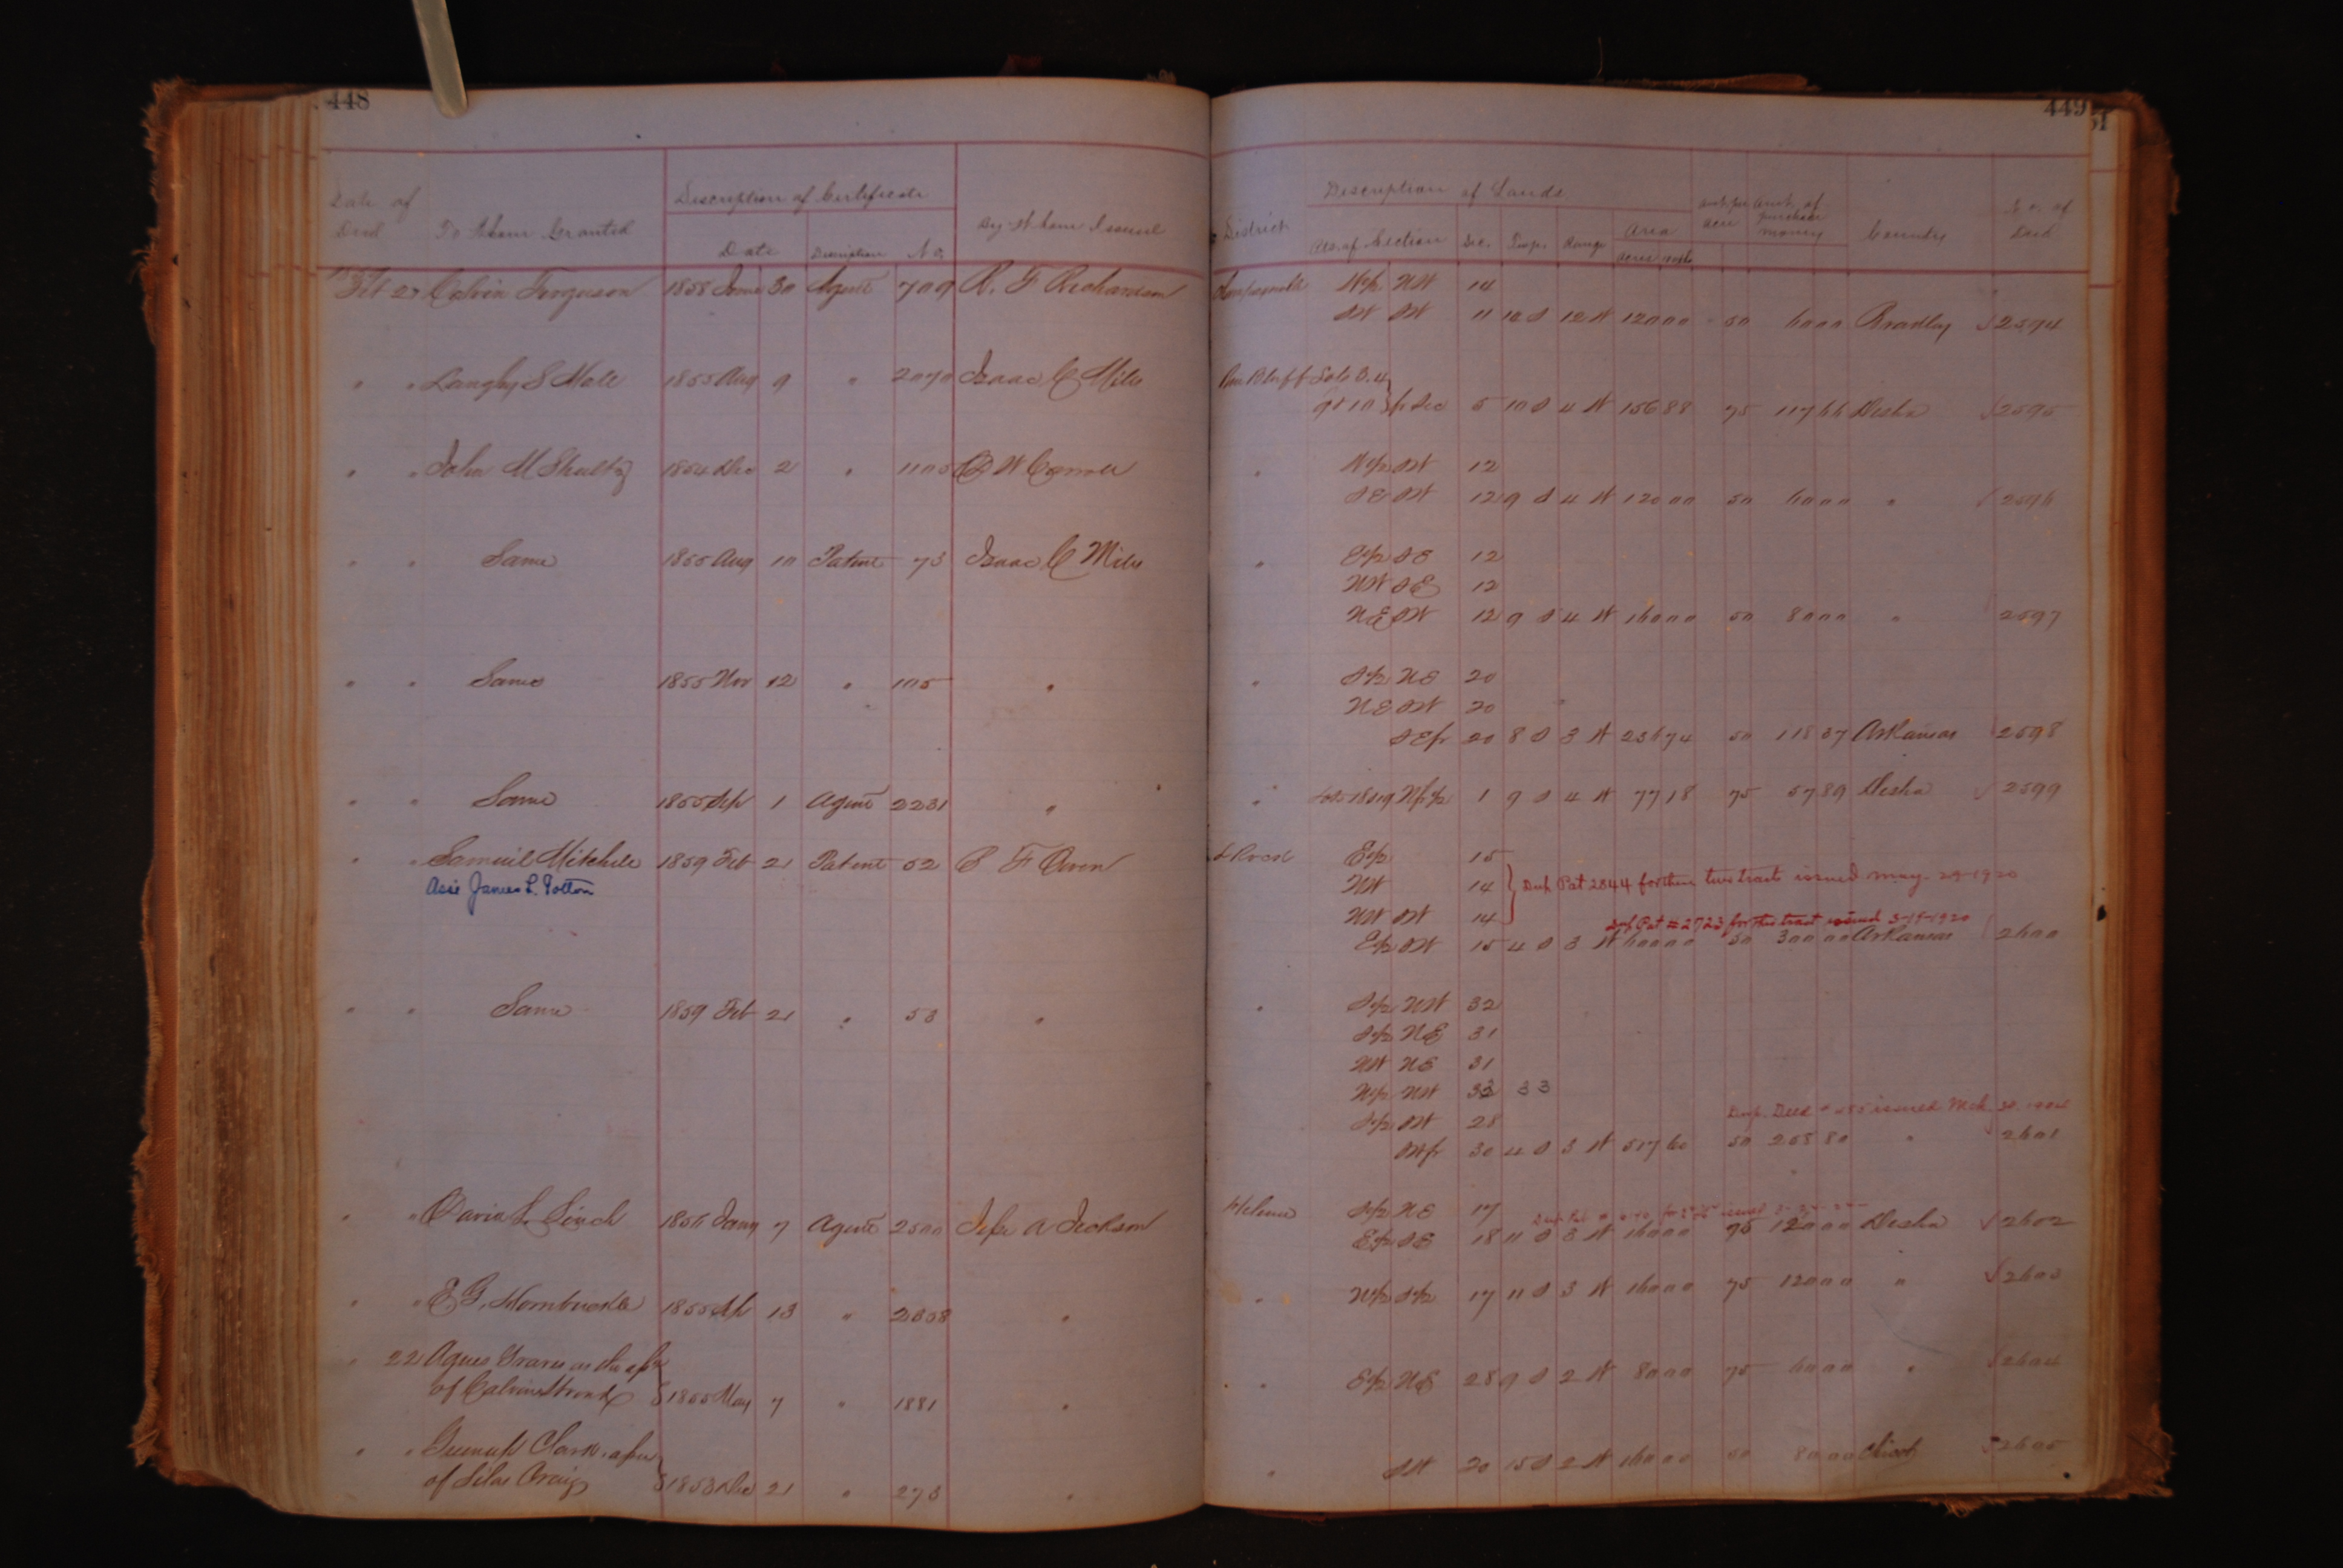 448
Date of Deed To Whom Granted Description of Certificate By Whom Issued
Date Description No
1859
Feb 27 Calvin Ferguson 1858 June 30 Agent 709 R. F Richardson
" " Langly S Hale 1855 Aug 9 " 2070 Isaac C Mills
" " John M Shultz 1854 Dec 2 " 1105
" " Same 1855 Aug 10 Patent 73 Isaac C Mills
" " Same 1855 Nov 12 " 105 "
" " Same 1855 Sep 1 Agent 2231 "
" " Samuel Mitchell 1859 Feb 21 Patent 52
Asse James L. Totten
" " Same 1859 Feb 21 " 53 "
" " David L. Linch 1856 Jany 7 Agent 2500 Jackson
" " E G. Hornbuckle 1855 Sep 13 " 2358 "
" 22 Agnes Graves
of Calvin Stroud 1855 May 7 " 1881 "
" " Clark
of Silas Craig 1853 Dec 21 " 273 "
449
51
District Description of Lands County No. of Deed
Pts. of Section Sec. Twp. Range Area acres amt. of purchase money
N½ NW 14
SW SW 11 12 W 120 00 50 60 00 Bradley 2594
Pine Bluff Lots 3. 4
9 & 10 fr Sec 5 10 S 4 W 156 88 75 117 66 Desha 2595
" N½ SW 12
SE SW 12 9 S 4 W 120 00 50 60 00 " 2596
" E½ SE 12
NW SE 12
NE SW 12 9 S 4 W 160 00 50 80 00 " 2597
" S½ NE 20
NE SW 20
SE fr 20 8 S 3 W 236 74 50 118 37 Arkansas 2598
" Lots 18 & 19 1 9 S 4 W 77 18 75 57 89 Desha 2599
E½ 15
NW 14 Dup Pat 2844 for these two tracts issued may - 29 - 1920
NW SW 14
Dup Pat #2723 for this tract issued 3-19-1920
E½ SW 15 4 S 3 W 600 00 50 300 00 Arkansas 2600
" S½ NW 32
S½ NE 31
NW NE 31
N½ NW 33 33
S½ SW 28 Dup. Deed issued Mch 30
SW fr 30 4 S 3 W 517 60 50 258 80 " 2601
Helena S½ NE 17
E½ SE 18 11 S 3 W 160 00 75 120 00 Desha 2602
" N½ S½ 17 11 S 3 W 160 00 75 120 00 " 2603
" E½ NE 28 9 S 2 W 80 00 75 60 00 " 2604
" SW 20 15 S 2 W 160 00 50 80 00 Chicot 2605